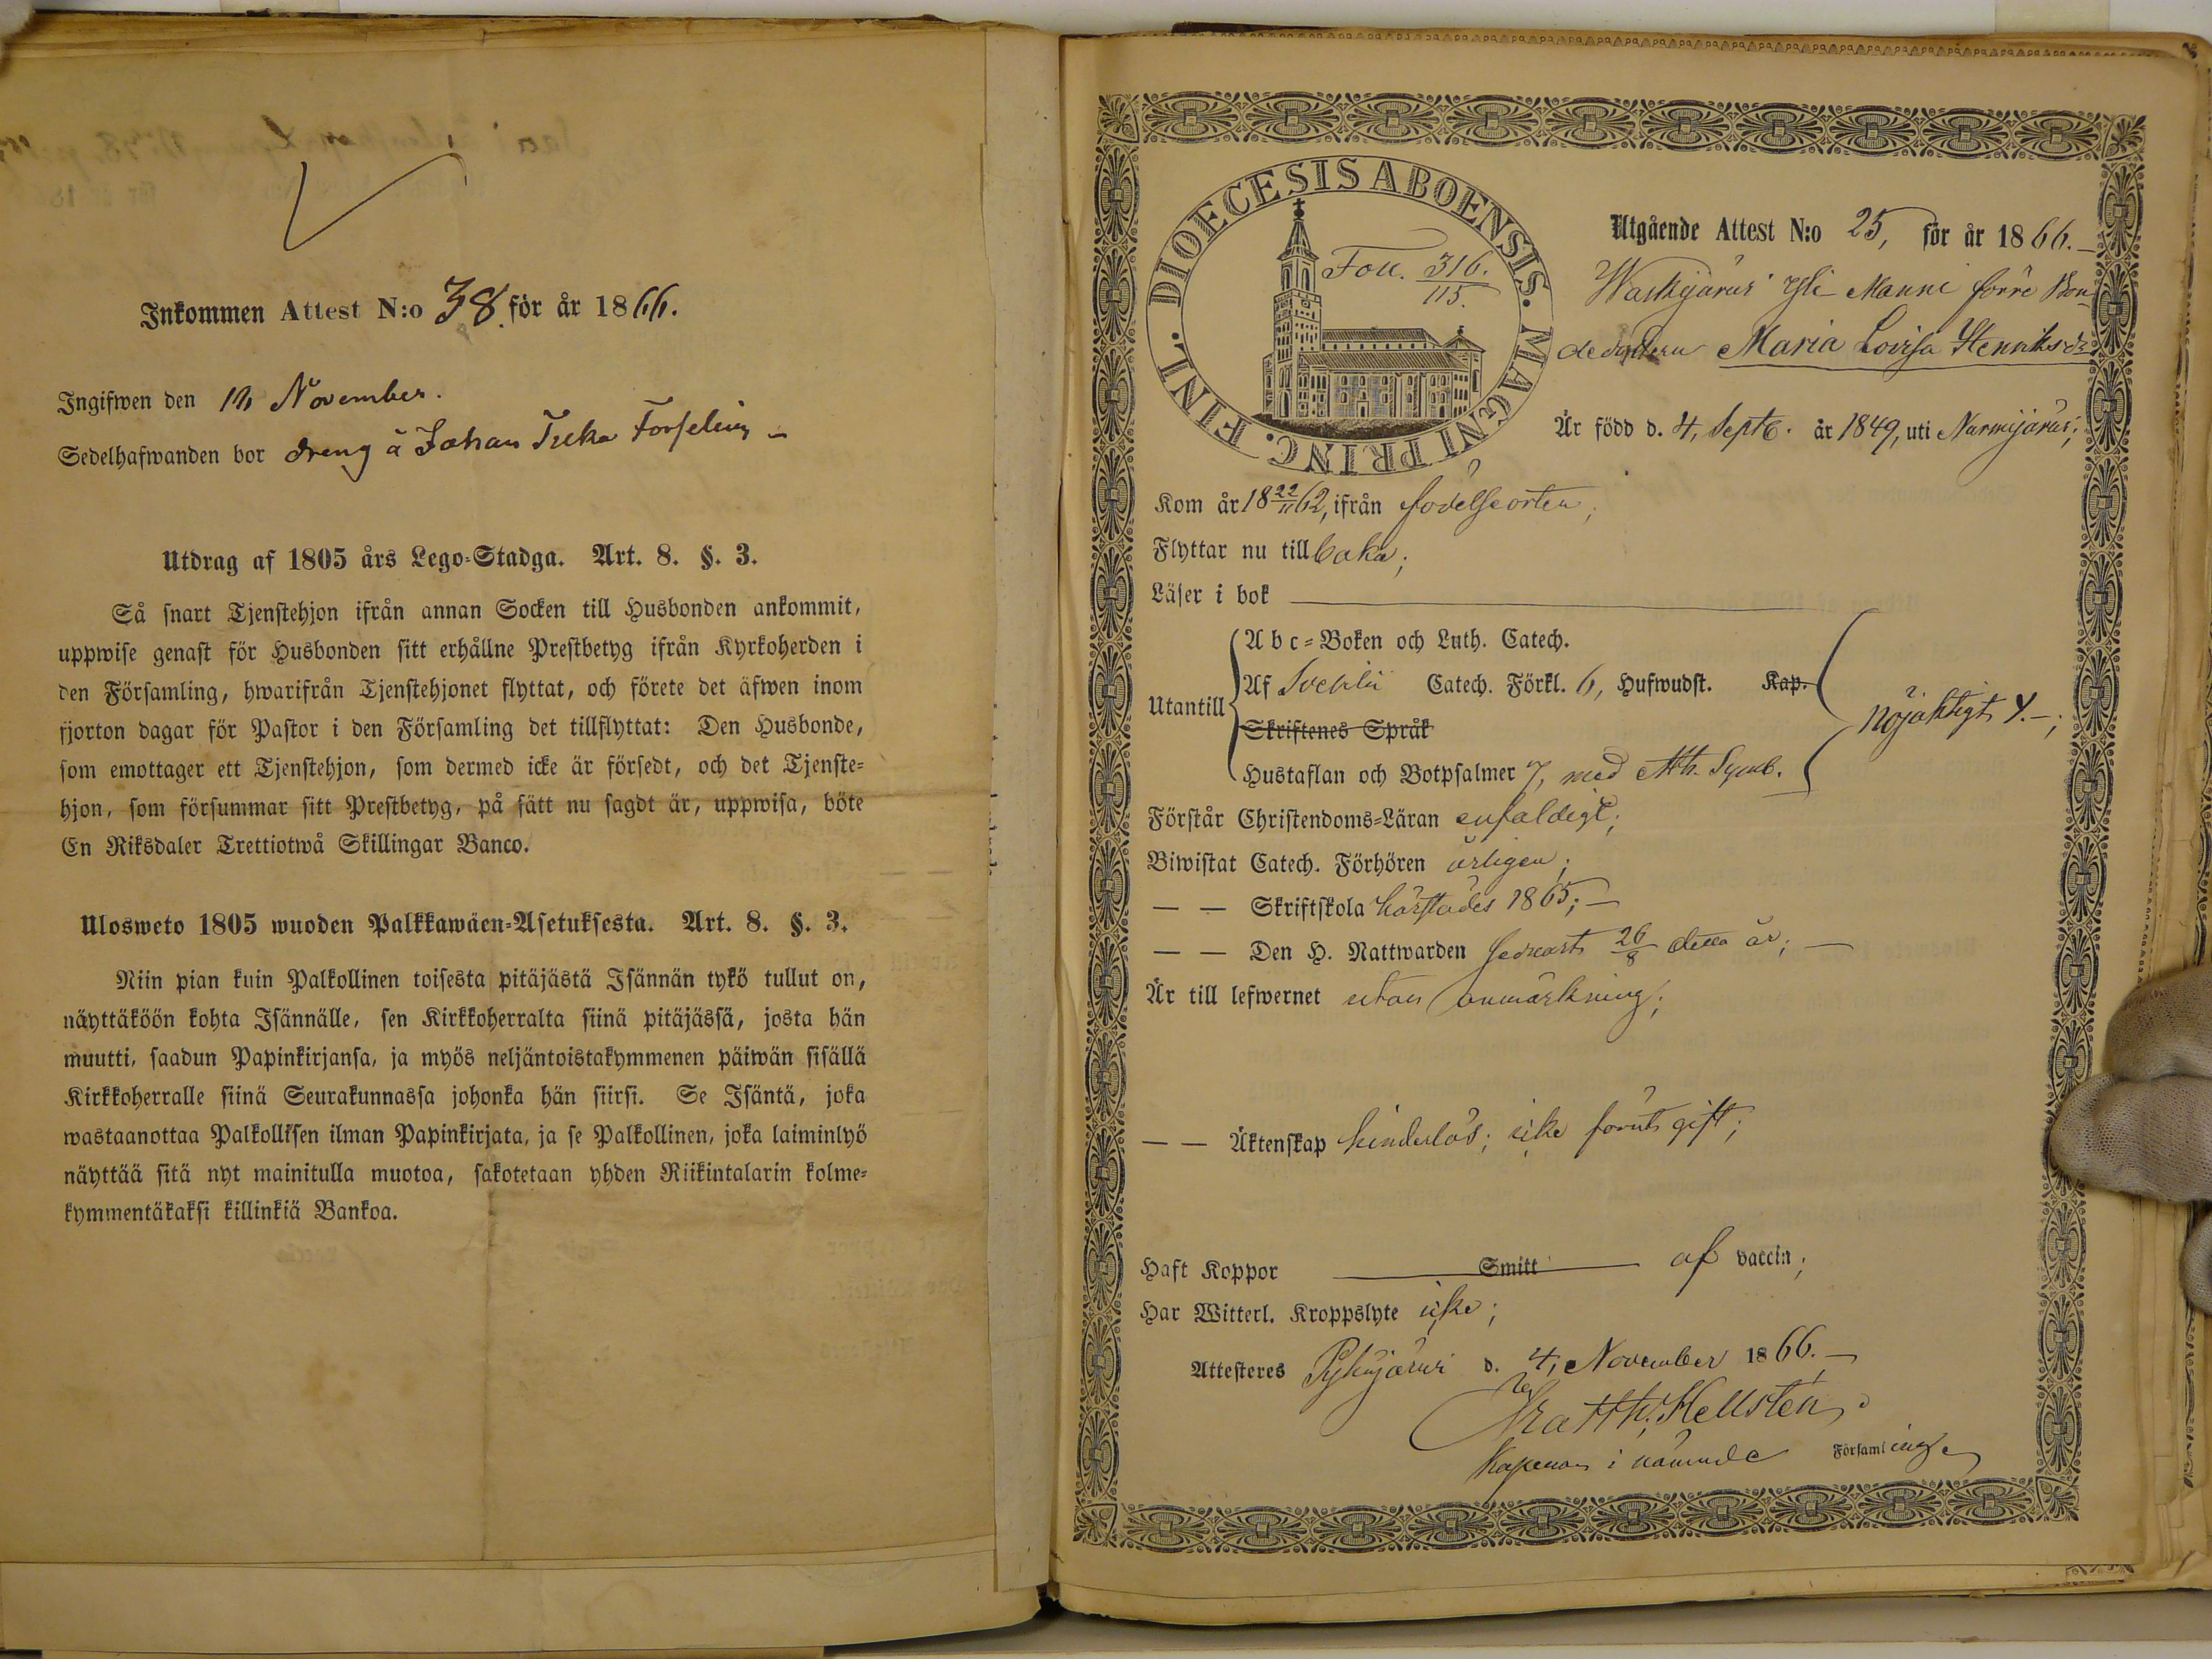 Inkommen Attest N:o 38 för år 1866.
Ingifwen den November.
Sedelhafwanden bor dreng å Johan
Utdrag af 1805 års Lego-Stadga. Art. 8. §. 3.
Så snart Tjenstehjon ifrån annan Socken till Husbonden ankommit,
uppwise genast för Husbonden sitt erhållne Prestbetyg ifrån Kyrkoherden i
den Församling, hwarifrån Tjenstehjonet flyttat, och förete det äfwen inom
fjorton dagar för Pastor i den Församling det tillflyttat: Den Husbonde,
som emottager ett Tjenstehjon, som dermed icke är försedt, och det Tjenste-
hjon, som försummar sitt Prestbetyg, på sätt nu sagdt är, uppwisa, böte
En Riksdaler Trettiotwå Skillingar Banco.
Ulosweto 1805 wuoden Palkkawäen-Asetuksesta. Art. 8. §. 3.
Niin pian kuin Palkollinen toisesta pitäjästä Isännän tykö tullut on,
näyttäköön kohta Isännälle, sen Kirkkoherralta siinä pitäjässä, josta hän
muutti, saadun Papinkirjansa, ja myös neljäntoistakymmenen päiwän sisällä
Kirkkoherralle siinä Seurakunnassa johonka hän siirsi. Se Isäntä, joka
wastaanottaa Palkollisen ilman Papinkirjata, ja se Palkollinen, joka laiminlyö
näyttää sitä nyt mainitulla muotoa, sakotetaan yhden Riikintalarin kolme-
kymmentäkaksi killinkiä Bankoa.
DIOECESIS ABOENSIS. MAGNI PRINC. FINL.
Foll. 316.
115.
Utgående Attest N:o 25, för år 1866.
Waskijärvi Yli Manni förre Bon-
dedottern Maria Lovisa Henriksdr
Är född d. 4, Septb. år 1849, uti Nurmijärvi;
Kom år 18 22/11 62, ifrån födelseorten;
Flyttar nu till baka;
Läser i bok
A b c-Boken och Luth. Catech.
Af Svebilii Catech. Förkl. 6, Hufwudst. Kap.
Utantill
nöjaktigt
Skriftenes Språk
Hustaflan och Botpsalmer 7, med Ath. Symb.
Förstår Christendoms-Läran enfaldigt;
Biwistat Catech. Förhören årligen;
— — Skriftskola härstädes 1865; —
— — Den H. Nattwarden sednast 26/8 detta år; —
Är till lefwernet utan anmärkning;
— — Äktenskap hinderlös; icke förut gift;
Haft Koppor Smitt af vaccin;
Har Witterl. Kroppslyte icke;
Attesteres Pyhäjärvi d. 4, November 1866. —
Matth. Hellstén,
Kapellan i nämnde Församling